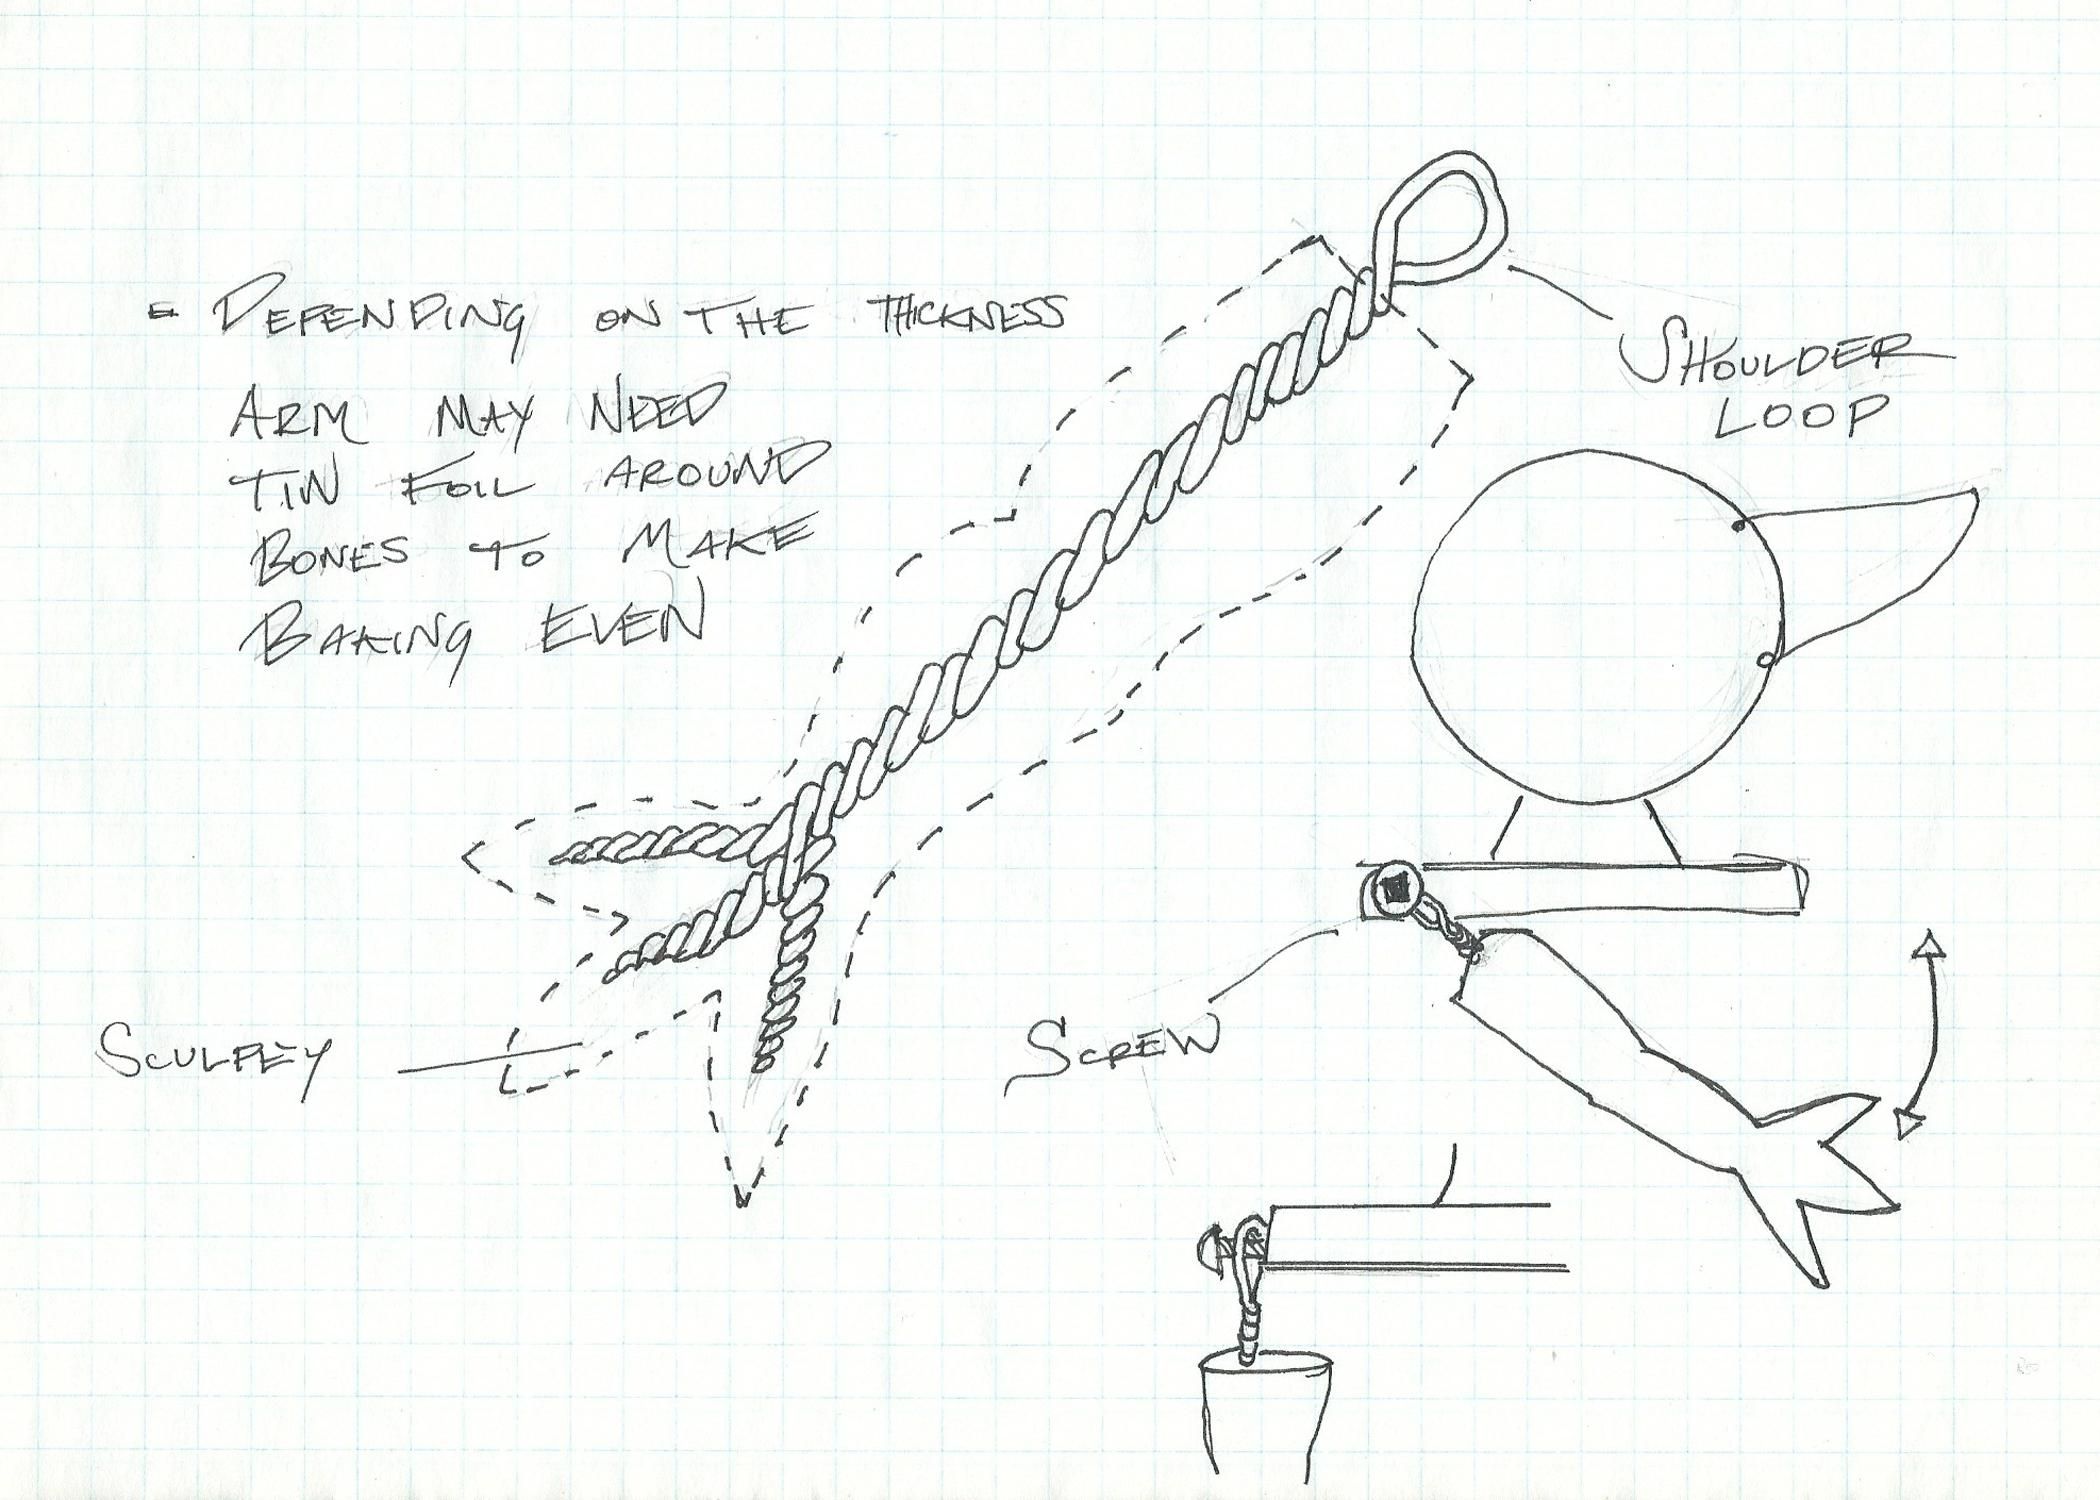 - DEPENDING ON THE THICKNESS
ARM MAY NEED
TIN FOIL AROUND
BONES TO MAKE
BAKING EVEN
SHOULDER
LOOP
SCULPEY
SCREW